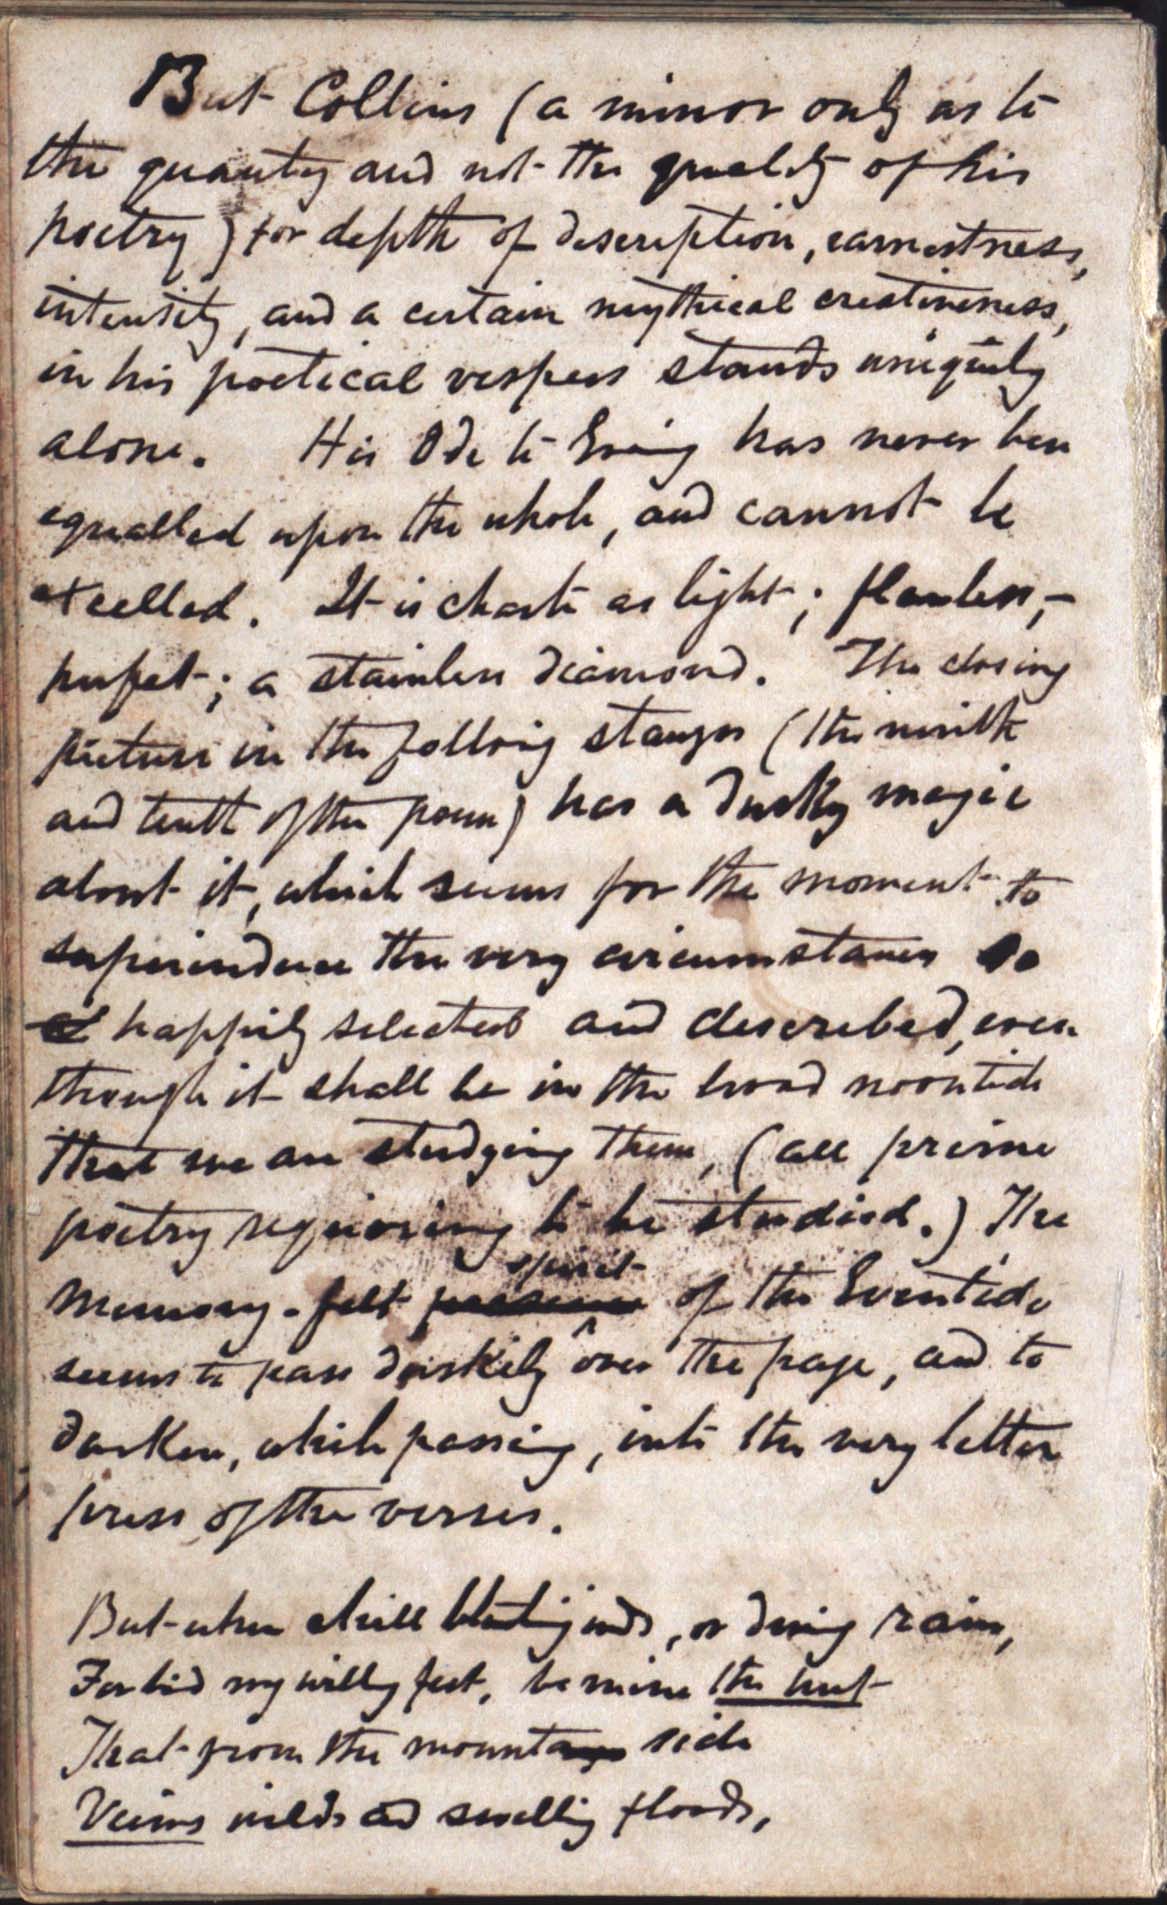 But Collins (a minor only as to
the quantity and not the quality of his
poetry) for depth of description, earnestness,
intensity, and a certain mythical creativeness,
in his poetical vespers stands uniquely
alone. His Ode to Evening has never been
equalled upon the whole, and cannot be
excelled. It is chaste as light; flawless,-
perfect; a stainless diamond. The closing
picture in the following stanzas (the ninth
and tenth of the poem) has a dusky magic
about it, which seems for the moment to
superinduce the very circumstances so
happily selected and described, even
though it shall be in the broad noontide
that we are studying them, (all prime
poetry requiring to be studied.) The
memory-felt presence spirit of the Eventide
seems to pass duskily over the page, and to
darken, while passing, into the very letter
press of the verses.
But when chill blustering winds, or driving rain,
Forbid my willing feet, be mine the hut
That from the mountain side
Views wilds and swelling floods,